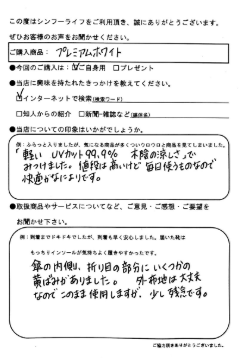 この度はシンフーライフをご利用頂き、誠にありがとうございます。
ぜひお客様のお声をお聞かせください。
ご購入商品: プレミアムホワイト
●今回のご購入は:☑ご自身用 □プレゼント
●当店に興味を持たれたきっかけを教えてください。
☑インターネットで検索(検索ワード)
□知人からの紹介 □新聞・雑誌など(媒体名)
●当店についての印象はいかがでしょうか。
例:ふらっと入りましたが、気になる商品が多くついウロウロと商品を見てしまいました。
軽い UVカット99.9% 木陰の涼しさ で
みつけました。値段は高いけど 毎日使うものなので
快適かなによりです。
●取扱商品やサービスについてなど、ご意見・ご感想・ご要望を
お聞かせ下さい。
例:到着までドキドキでしたが、到着も早く安心しました。届いた靴は
もっちりインソールが気持ちよく履きやすかったです。
傘の内側、折り目の部分に いくつかの
黄ばみがありました。 外布地は大丈夫
なのでこのまま使用しますが、少し残念です。
ご協力頂きありがとうございました。